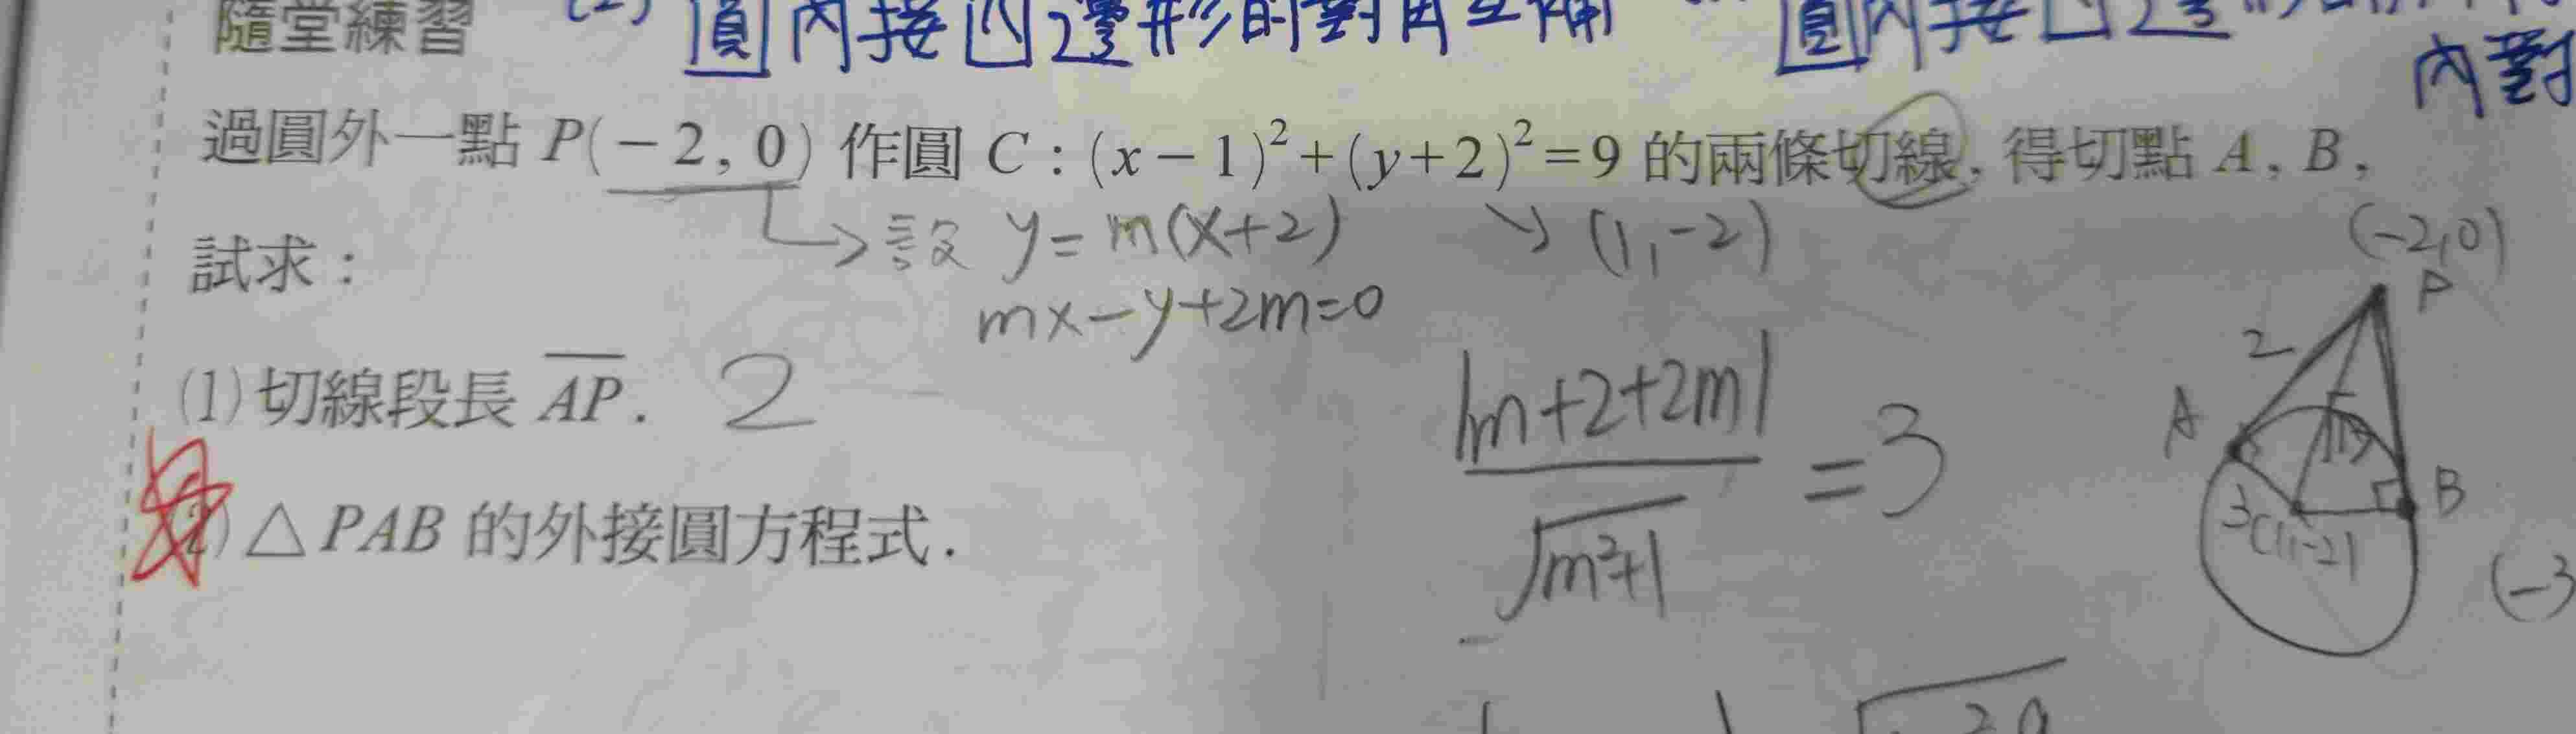 隨堂練習 (2) 圓內接四邊形的對角互補 圓內接四邊
內對
過圓外一點 P(−2, 0) 作圓 C：(x−1)²+(y+2)²=9 的兩條切線, 得切點 A, B,
→ 設 y = m(x+2) ↘ (1,-2) (-2,0)
試求：
mx-y+2m=0 P
(1) 切線段長 AP. 2
|m+2+2m| / √m²+1 = 3
2
A B
3 (1,-2)
(2) △PAB 的外接圓方程式.
(-3